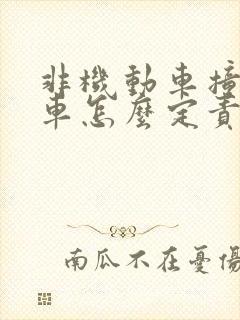 非機動車撞
車怎麼定責
南瓜不在憂傷